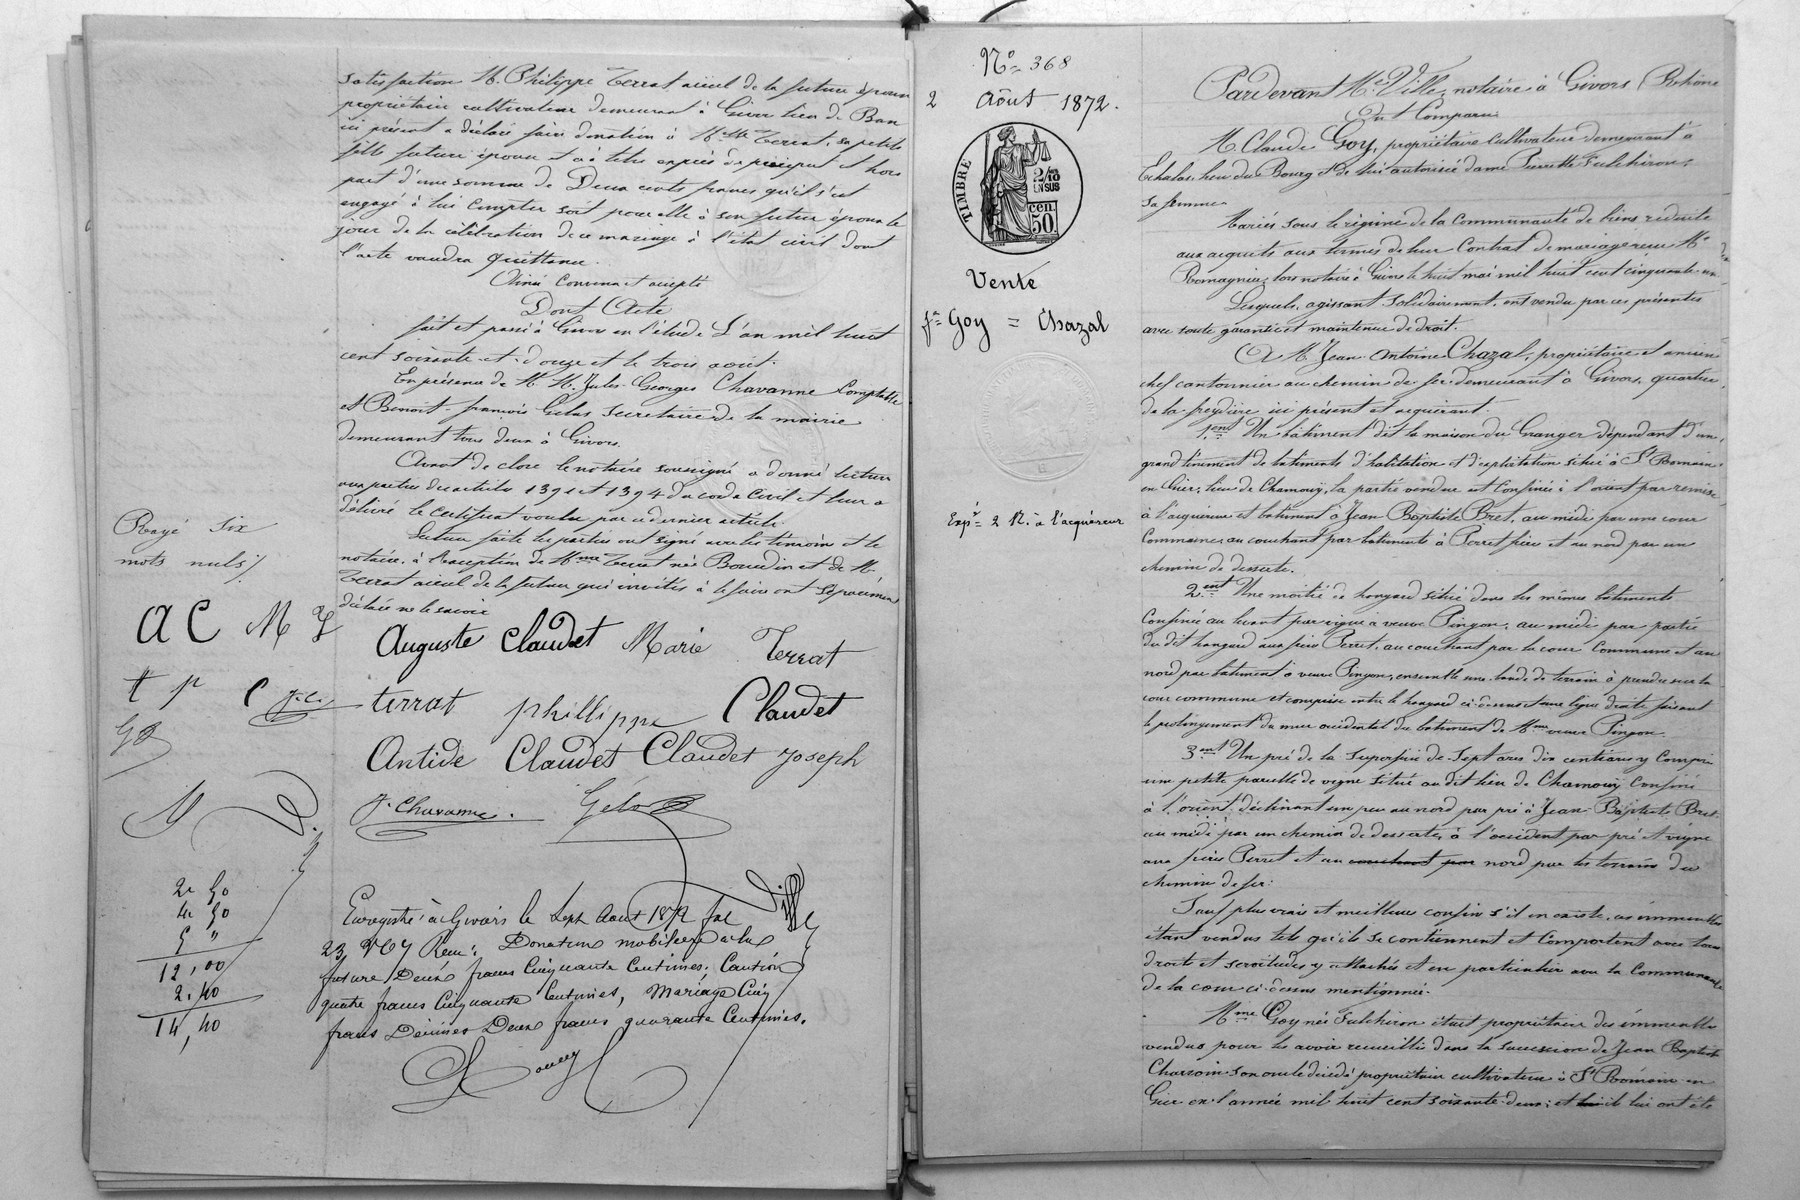 satisfaction M. Philippe Terrat aïeul de la future épouse
propriétaire cultivateur demeurant à Givors lieu de Ban
ici présent a déclaré faire donation à Mlle Terrat, sa petite
fille future épouse et à titre exprès de préciput et hors
part d'une somme de Deux cents francs qu'il s'est
engagé à lui compter soit pour elle à son futur époux le
jour de la célébration de ce mariage à l'état civil dont
l'acte vaudra quittance.
Ainsi convenu et accepté
Dont Acte
fait et passé à Givors en l'étude L'an mil huit
cent soixante-et-douze et le trois août.
En présence de M. M. Jules Georges Chavanne Comptable
et Benoît françois Gelas Secrétaire de la mairie
demeurant tous deux à Givors.
Avant de clore le notaire soussigné a donné lecture
aux parties des articles 1391 et 1394 du code Civil et leur a
délivré le certificat voulu par ce dernier article.
Lecture faite les parties ont signé avec les témoins et le
notaire, à l'exception de Mme Terrat née Bourdin et de M.
Terrat aïeul de la future qui invités à le faire ont séparément
déclaré ne le savoir
Rayé six
mots nuls
A C M T
t p C J.C.
GB
Auguste Claudet Marie Terrat
terrat phillippe Claudet
Antide Claudet Claudet Joseph
J. Chavanne. Gelas
Ville
2 50
4 50
5 "
12,00
2,40
14,40
Enregistré à Givors le Sept Août 1872 fol
23, Vo C7 Reçu: Donation mobilière à la
future Deux francs Cinquante Centimes, Caution
quatre francs Cinquante Centimes, Mariage Cinq
francs Décimes Deux francs quarante Centimes.
No 368
2 Août 1872.
TIMBRE
2/10 EN SUS
50 cen.
Vente
fs Goy = Chazal
Expé 2 R. à l'acquéreur
Pardevant Me Ville, notaire à Givors (Rhône
Ont Comparu
M. Claude Goy, propriétaire Cultivateur demeurant à
Echalas, lieu du Bourg et de lui autorisée dame Pierrette Fulchiron,
sa femme
Mariés sous le régime de la Communauté de biens réduite
aux acquets aux termes de leur Contrat de mariage reçu Me
Romagnieu, lors notaire à Givors le huit mai mil huit cent cinquante un
Lesquels, agissant solidairement, ont vendu par ces présentes
avec toute garantie et maintenue de droit.
A M. Jean Antoine Chazal, propriétaire et ancien
chef cantonnier au chemin de fer demeurant à Givors, quartier
de la freydière ici présent et acquérant.
1ent Un bâtiment dit la maison du Granger dépendant d'un
grand tènement de bâtiments d'habitation et d'exploitation situé à St Romain
en Gier, lieu de Chamouy, la partie vendue est Confinée à l'orient par remise
à l'acquéreur et bâtiment à Jean Baptiste Bret, au midi par une cour
Commune, au couchant par bâtiments à Perret père et au nord par un
chemin de desserte.
2ent Une moitié de hangard situé dans les mêmes bâtiments
Confinée au levant par vigne à veuve Pingon, au midi par partie
du dit hangard aux fières Perret, au couchant par la cour Commune et au
nord par bâtiment à veuve Pingon, ensemble une bande de terrain à prendre sur la
cour commune et comprise entre le hangard ci-dessus et une ligne droite faisant
le prolongement du mur occidental du bâtiment de Mme veuve Pingon.
3ent Un pré de la superficie de sept ares dix centiares y compris
une petite parcelle de vigne situé au dit lieu de Chamouy Confiné
à l'orient déclinant un peu au nord par pré à Jean Baptiste Bret
au midi par un chemin de desserte, à l'occident par pré et vigne
aux frères Perret et au couchant par nord par les terrains du
chemin de fer.
Sauf plus vrais et meilleurs confins s'il en existe, ces immeubles
étant vendus tels qu'ils se contiennent et Comportent avec tous
droits et servitudes y attachés et en particulier avec la Communauté
de la cour ci-dessus mentionnée.
Mme Goy née Fulchiron était propriétaire des immeubles
vendus pour les avoir recueillis dans la succession de Jean Baptiste
Charroin son oncle décédé propriétaire cultivateur à St Romain en
Gier en l'année mil huit cent soixante-deux; et ils lui ont été